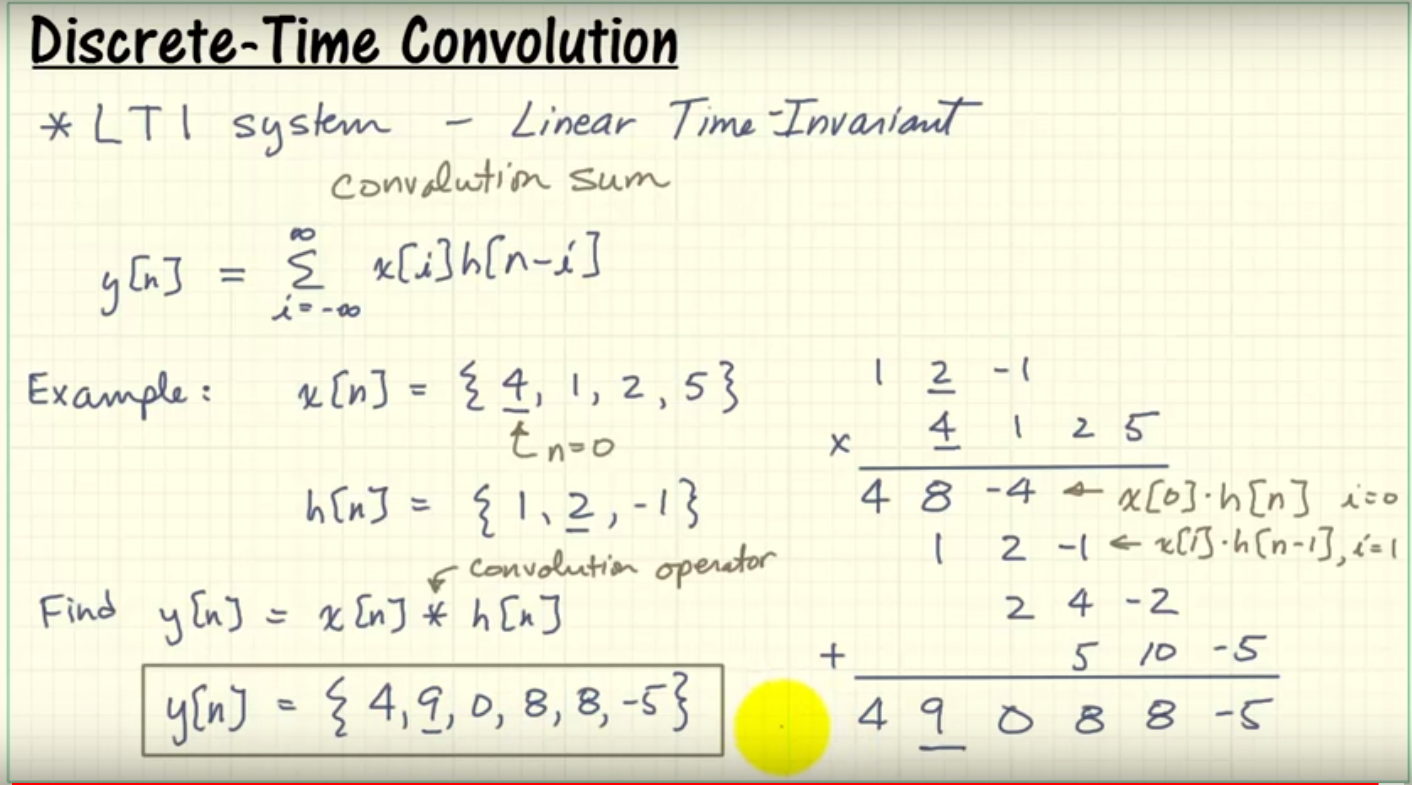 Discrete-Time Convolution
* LTI system - Linear Time-Invariant
convolution sum
y[n] = ∞ Σ i=-∞ x[i]h[n-i]
Example: x[n] = { 4, 1, 2, 5 }
n=0
h[n] = { 1, 2, -1 }
convolution operator
Find y[n] = x[n] * h[n]
y[n] = { 4, 9, 0, 8, 8, -5 }
1 2 -1
x 4 1 2 5
4 8 -4 ← x[0]·h[n] i=0
1 2 -1 ← x[1]·h[n-1], i=1
2 4 -2
+ 5 10 -5
4 9 0 8 8 -5